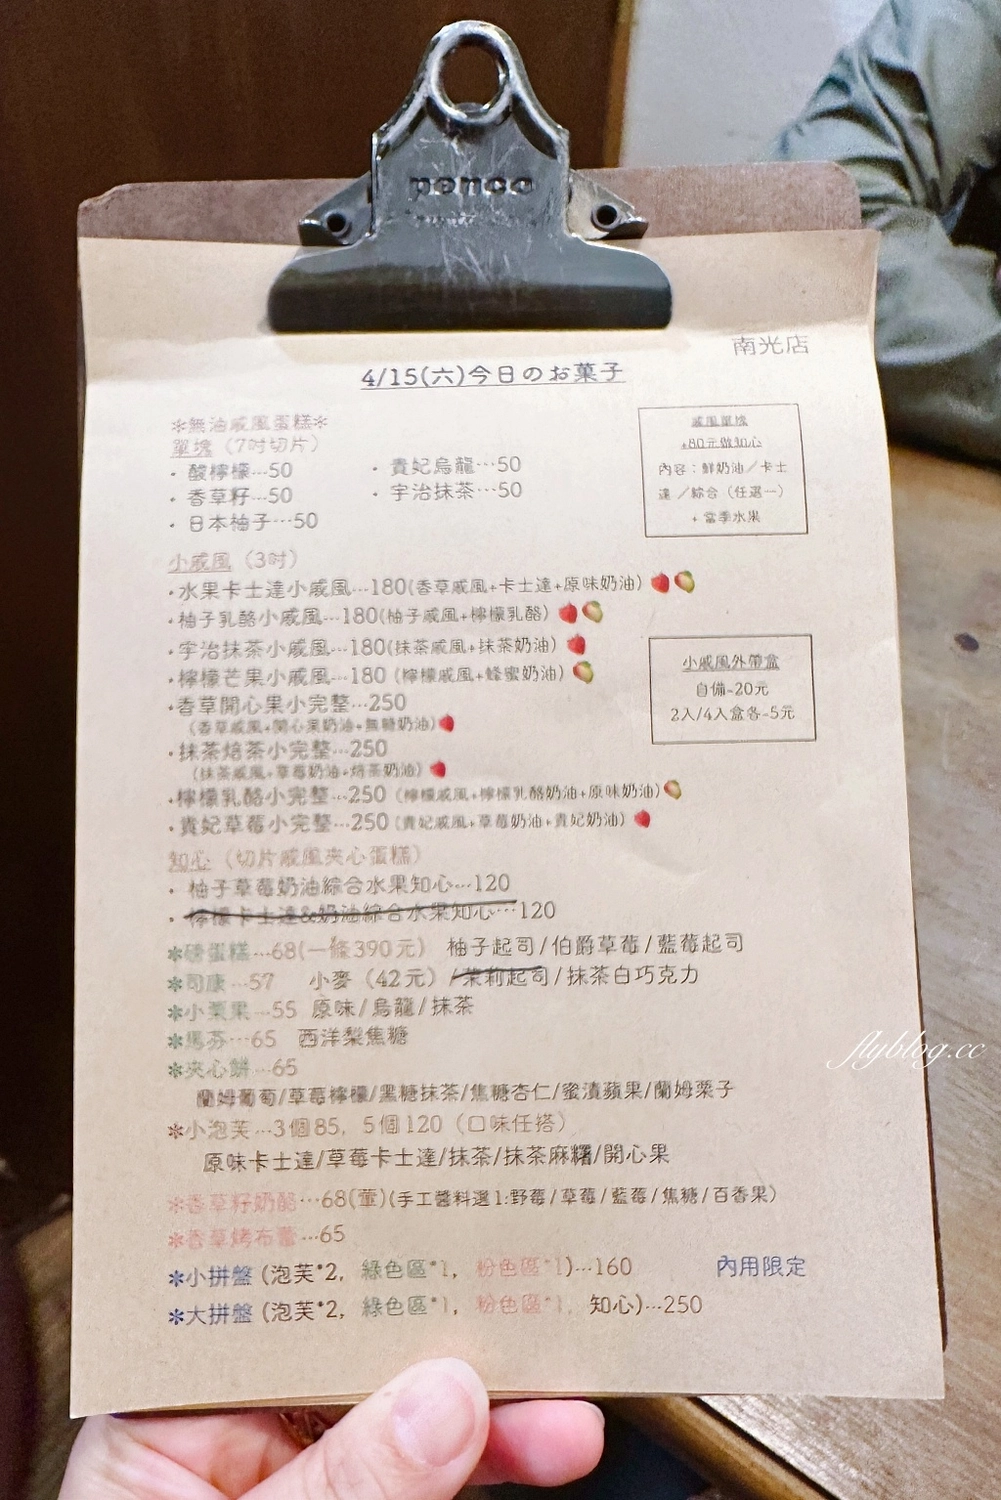 penco
南光店
4/15(六)今日のお菓子
＊無油戚風蛋糕＊
單塊（7吋切片）
・酸檸檬…50
・貴妃烏龍…50
・香草籽…50
・宇治抹茶…50
・日本柚子…50
戚風單塊
+80元做知心
內容：鮮奶油／卡士
達／綜合（任選一）
+ 當季水果
小戚風（3吋）
・水果卡士達小戚風…180(香草戚風+卡士達+原味奶油)
・柚子乳酪小戚風…180(柚子戚風+檸檬乳酪)
・宇治抹茶小戚風…180(抹茶戚風+抹茶奶油)
・檸檬芒果小戚風…180 (檸檬戚風+蜂蜜奶油)
・香草開心果小完整…250
(香草戚風+開心果奶油+無糖奶油)
・抹茶焙茶小完整…250
(抹茶戚風+草莓奶油+焙茶奶油)
・檸檬乳酪小完整…250 (檸檬戚風+檸檬乳酪奶油+原味奶油)
・貴妃草莓小完整…250 (貴妃戚風+草莓奶油+貴妃奶油)
小戚風外帶盒
自備-20元
2入/4入盒各-5元
知心（切片戚風夾心蛋糕）
・柚子草莓奶油綜合水果知心…120
・檸檬卡士達&奶油綜合水果知心…120
＊磅蛋糕…68(一條390元) 柚子起司/伯爵草莓/藍莓起司
＊司康…57 小麥（42元）/茉莉起司/抹茶白巧克力
＊小栗果…55 原味/烏龍/抹茶
＊馬芬…65 西洋梨焦糖
＊夾心餅…65
蘭姆葡萄/草莓檸檬/黑糖抹茶/焦糖杏仁/蜜漬蘋果/蘭姆栗子
＊小泡芙…3個85, 5個120（口味任搭）
原味卡士達/草莓卡士達/抹茶/抹茶麻糬/開心果
＊香草籽奶酪…68(葷)(手工醬料選1:野莓/草莓/藍莓/焦糖/百香果)
＊香草烤布蕾…65
＊小拼盤 (泡芙*2, 綠色區*1, 粉色區*1)…160 內用限定
＊大拼盤 (泡芙*2, 綠色區*1, 粉色區*1, 知心)…250
flyblog.cc